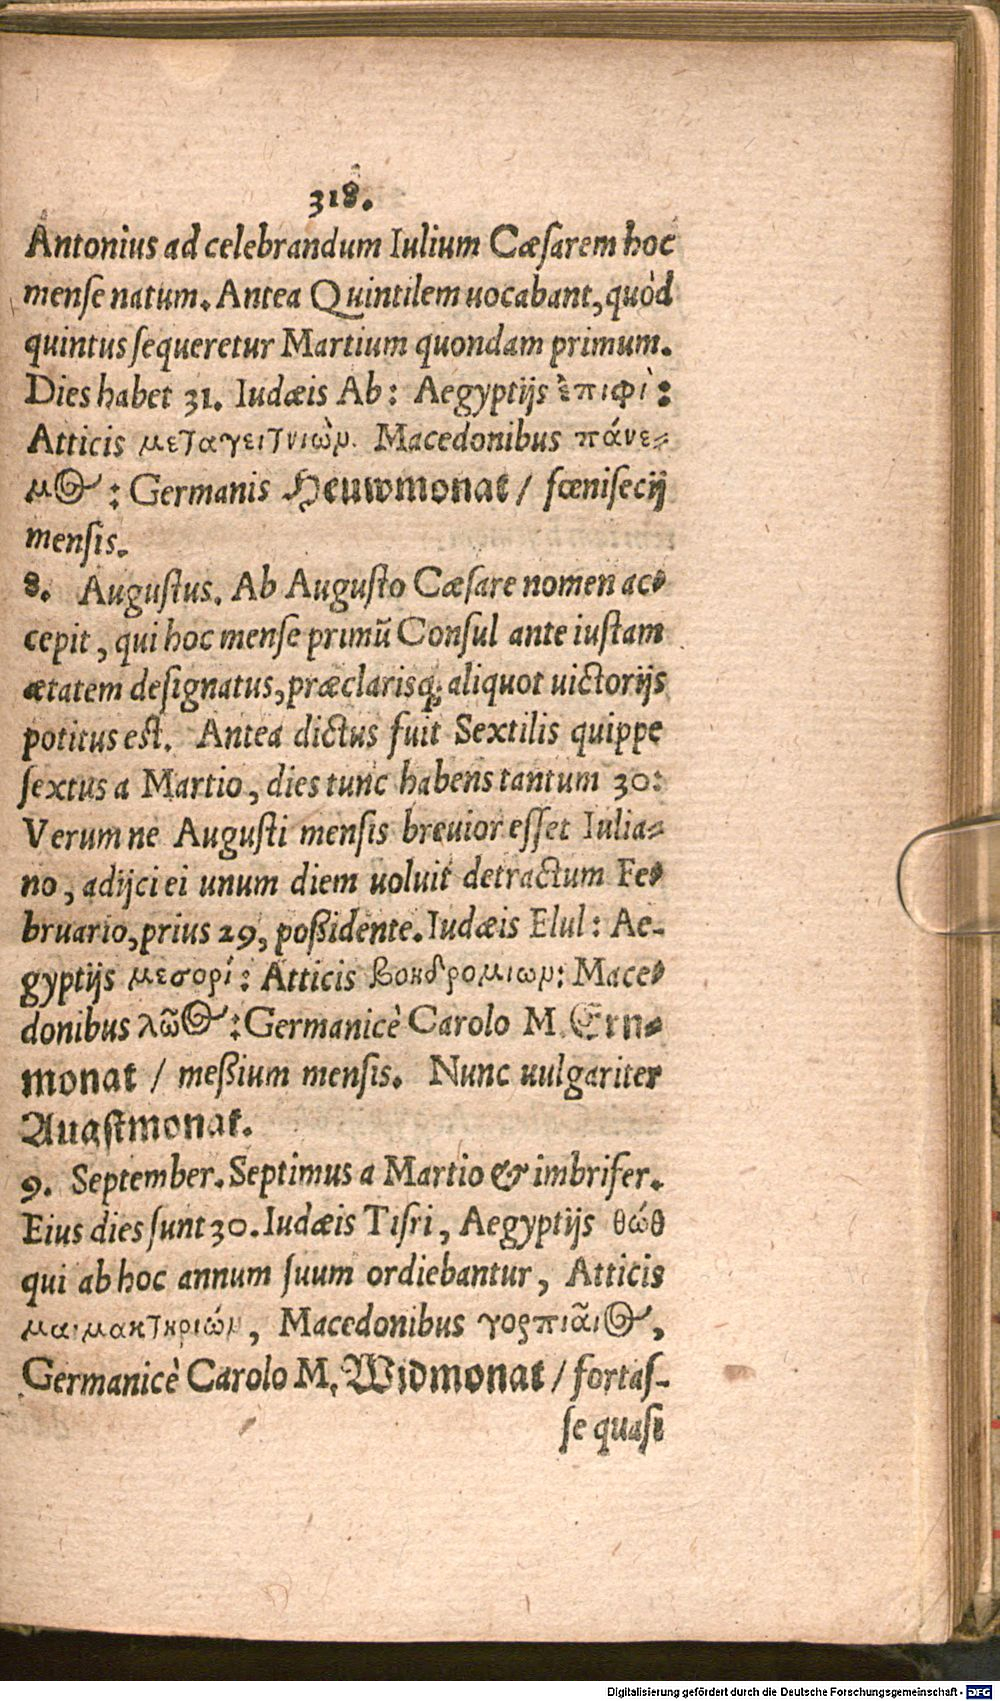 318.
Antonius ad celebrandum Iulium Cæſarem hoc
menſe natum. Antea Quintilem uocabant, quòd
quintus ſequeretur Martium quondam primum.
Dies habet 31. Iudæis Ab: Aegyptijs ἐπιφὶ:
Atticis μεταγειτνιὼν. Macedonibus πάνε=
μος: Germanis Heuwmonat / fœniſecij
menſis.
8. Auguſtus. Ab Auguſto Cæſare nomen ac=
cepit, qui hoc menſe primū Conſul ante iuſtam
ætatem deſignatus, præclarisq; aliquot uictorijs
potitus eſt. Antea dictus fuit Sextilis quippe
ſextus a Martio, dies tunc habens tantum 30:
Verum ne Auguſti menſis breuior eſſet Iulia=
no, adijci ei unum diem uoluit detractum Fe=
bruario, prius 29, poßidente. Iudæis Elul: Ae-
gyptijs μεσορί: Atticis βοηδρομιων: Mace=
donibus λῶος: Germanicè Carolo M. Ern=
monat / meßium menſis. Nunc uulgariter
Augſtmonat.
9. September. Septimus a Martio & imbrifer.
Eius dies ſunt 30. Iudæis Tiſri, Aegyptijs θώθ
qui ab hoc annum ſuum ordiebantur, Atticis
μαιμακτηριών, Macedonibus γορπιᾶιος,
Germanicè Carolo M. Widmonat / fortaſ-
ſe quaſi
Digitalisierung gefördert durch die Deutsche Forschungsgemeinschaft - DFG